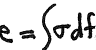 e = ∫σdf